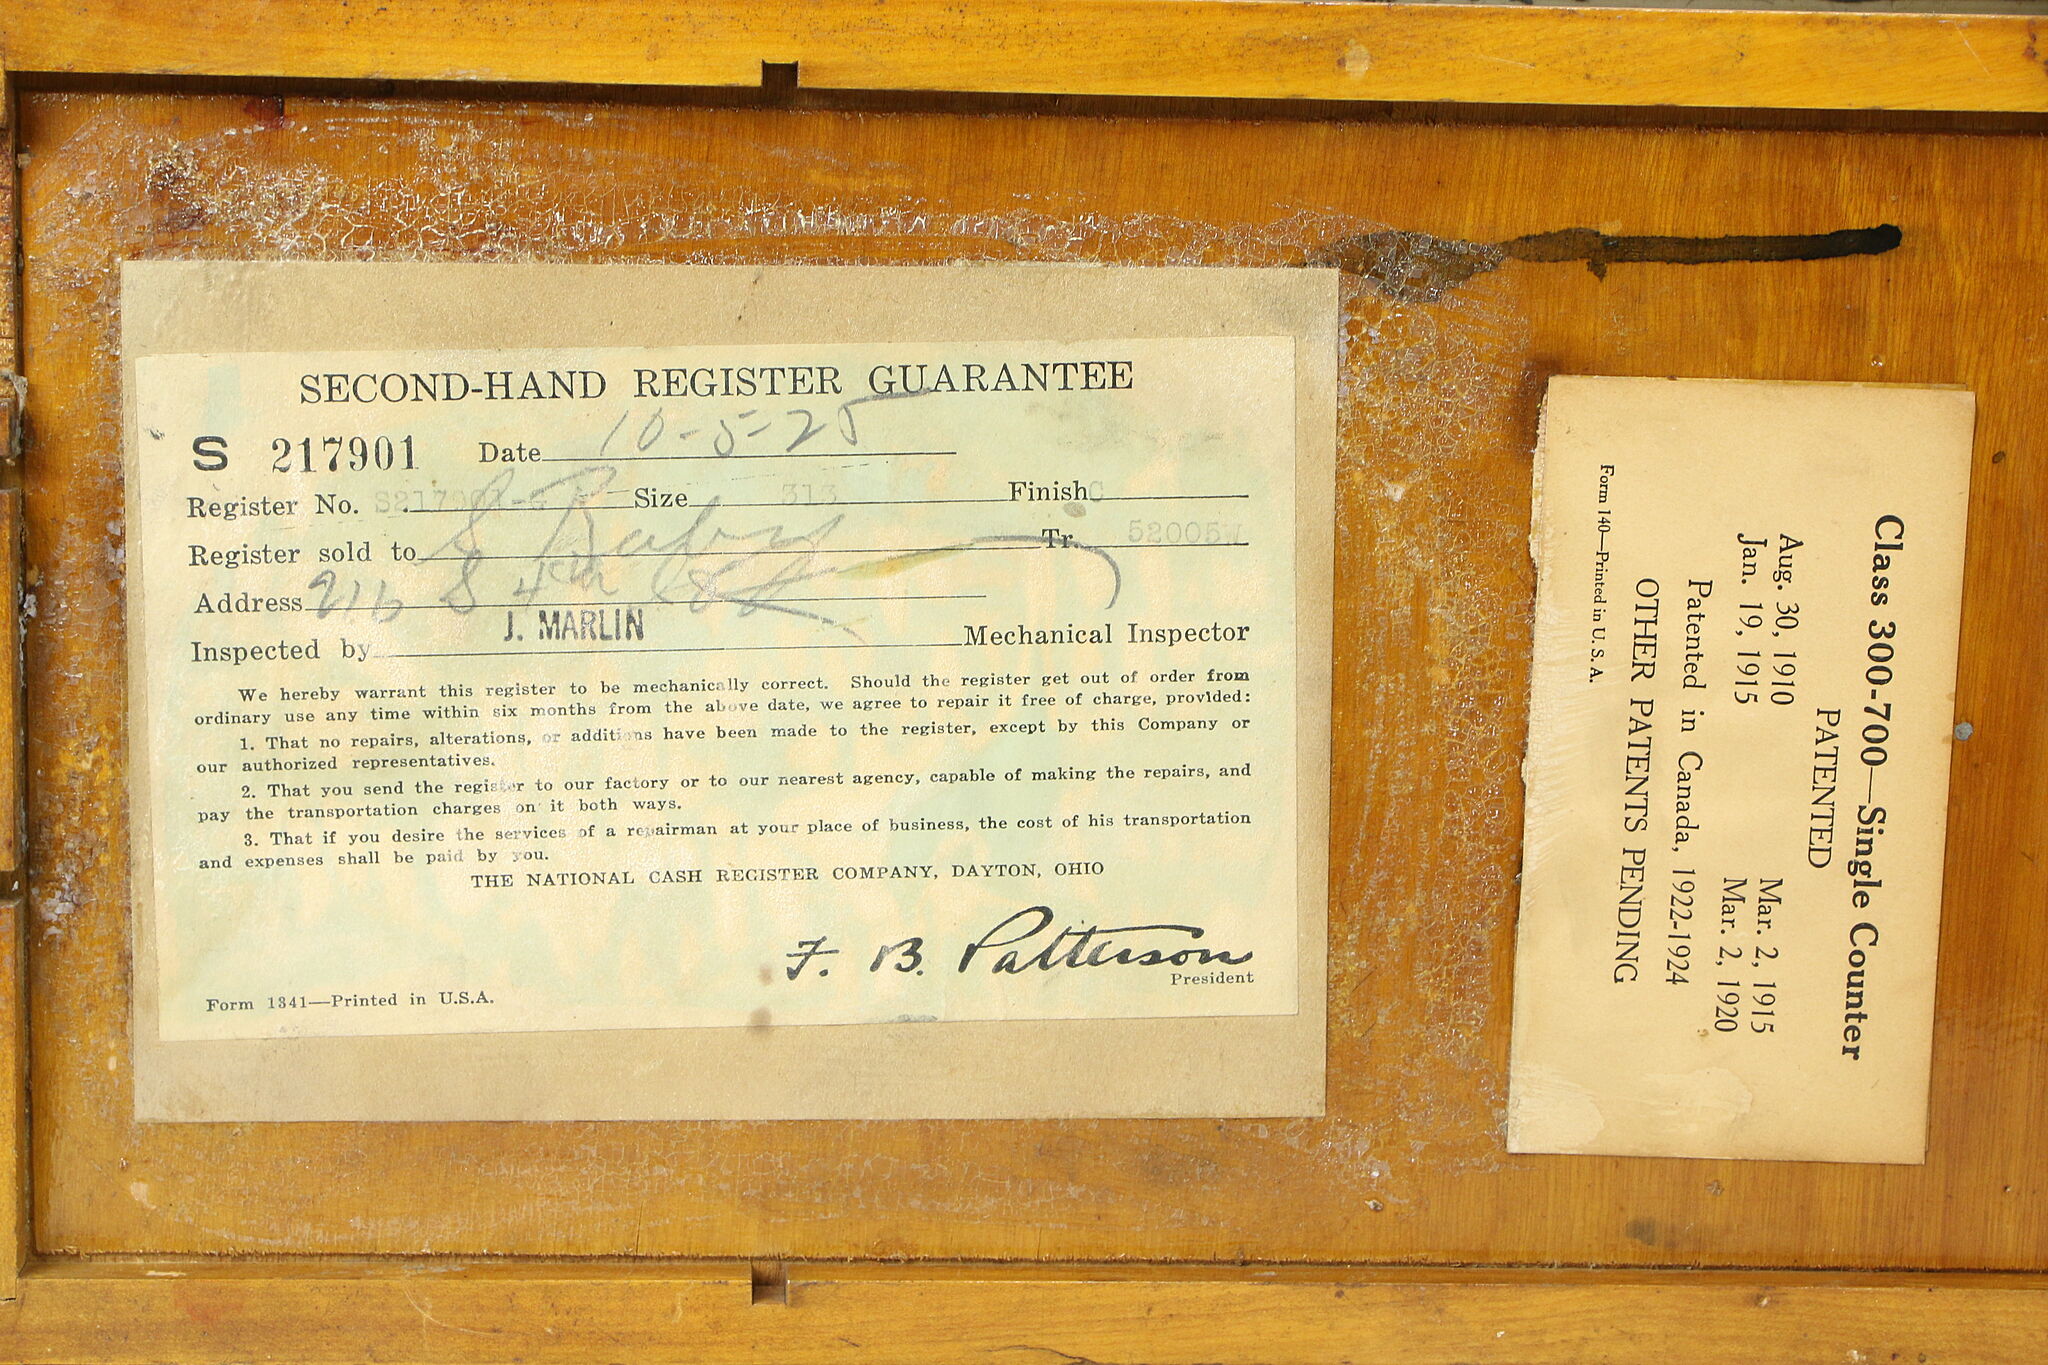 SECOND-HAND REGISTER GUARANTEE
S 217901 Date 10-5-25
Register No. S217901-G Size 313 Finish C
Register sold to S Tr. 52005W
Address 916 S 4th St
Inspected by J. MARLIN Mechanical Inspector
We hereby warrant this register to be mechanically correct. Should the register get out of order from
ordinary use any time within six months from the above date, we agree to repair it free of charge, provided:
1. That no repairs, alterations, or additions have been made to the register, except by this Company or
our authorized representatives.
2. That you send the register to our factory or to our nearest agency, capable of making the repairs, and
pay the transportation charges on it both ways.
3. That if you desire the services of a repairman at your place of business, the cost of his transportation
and expenses shall be paid by you.
THE NATIONAL CASH REGISTER COMPANY, DAYTON, OHIO
F. B. Patterson
President
Form 1341—Printed in U.S.A.
Class 300-700—Single Counter
PATENTED
Aug. 30, 1910 Mar. 2, 1915
Jan. 19, 1915 Mar. 2, 1920
Patented in Canada, 1922-1924
OTHER PATENTS PENDING
Form 140—Printed in U. S. A.